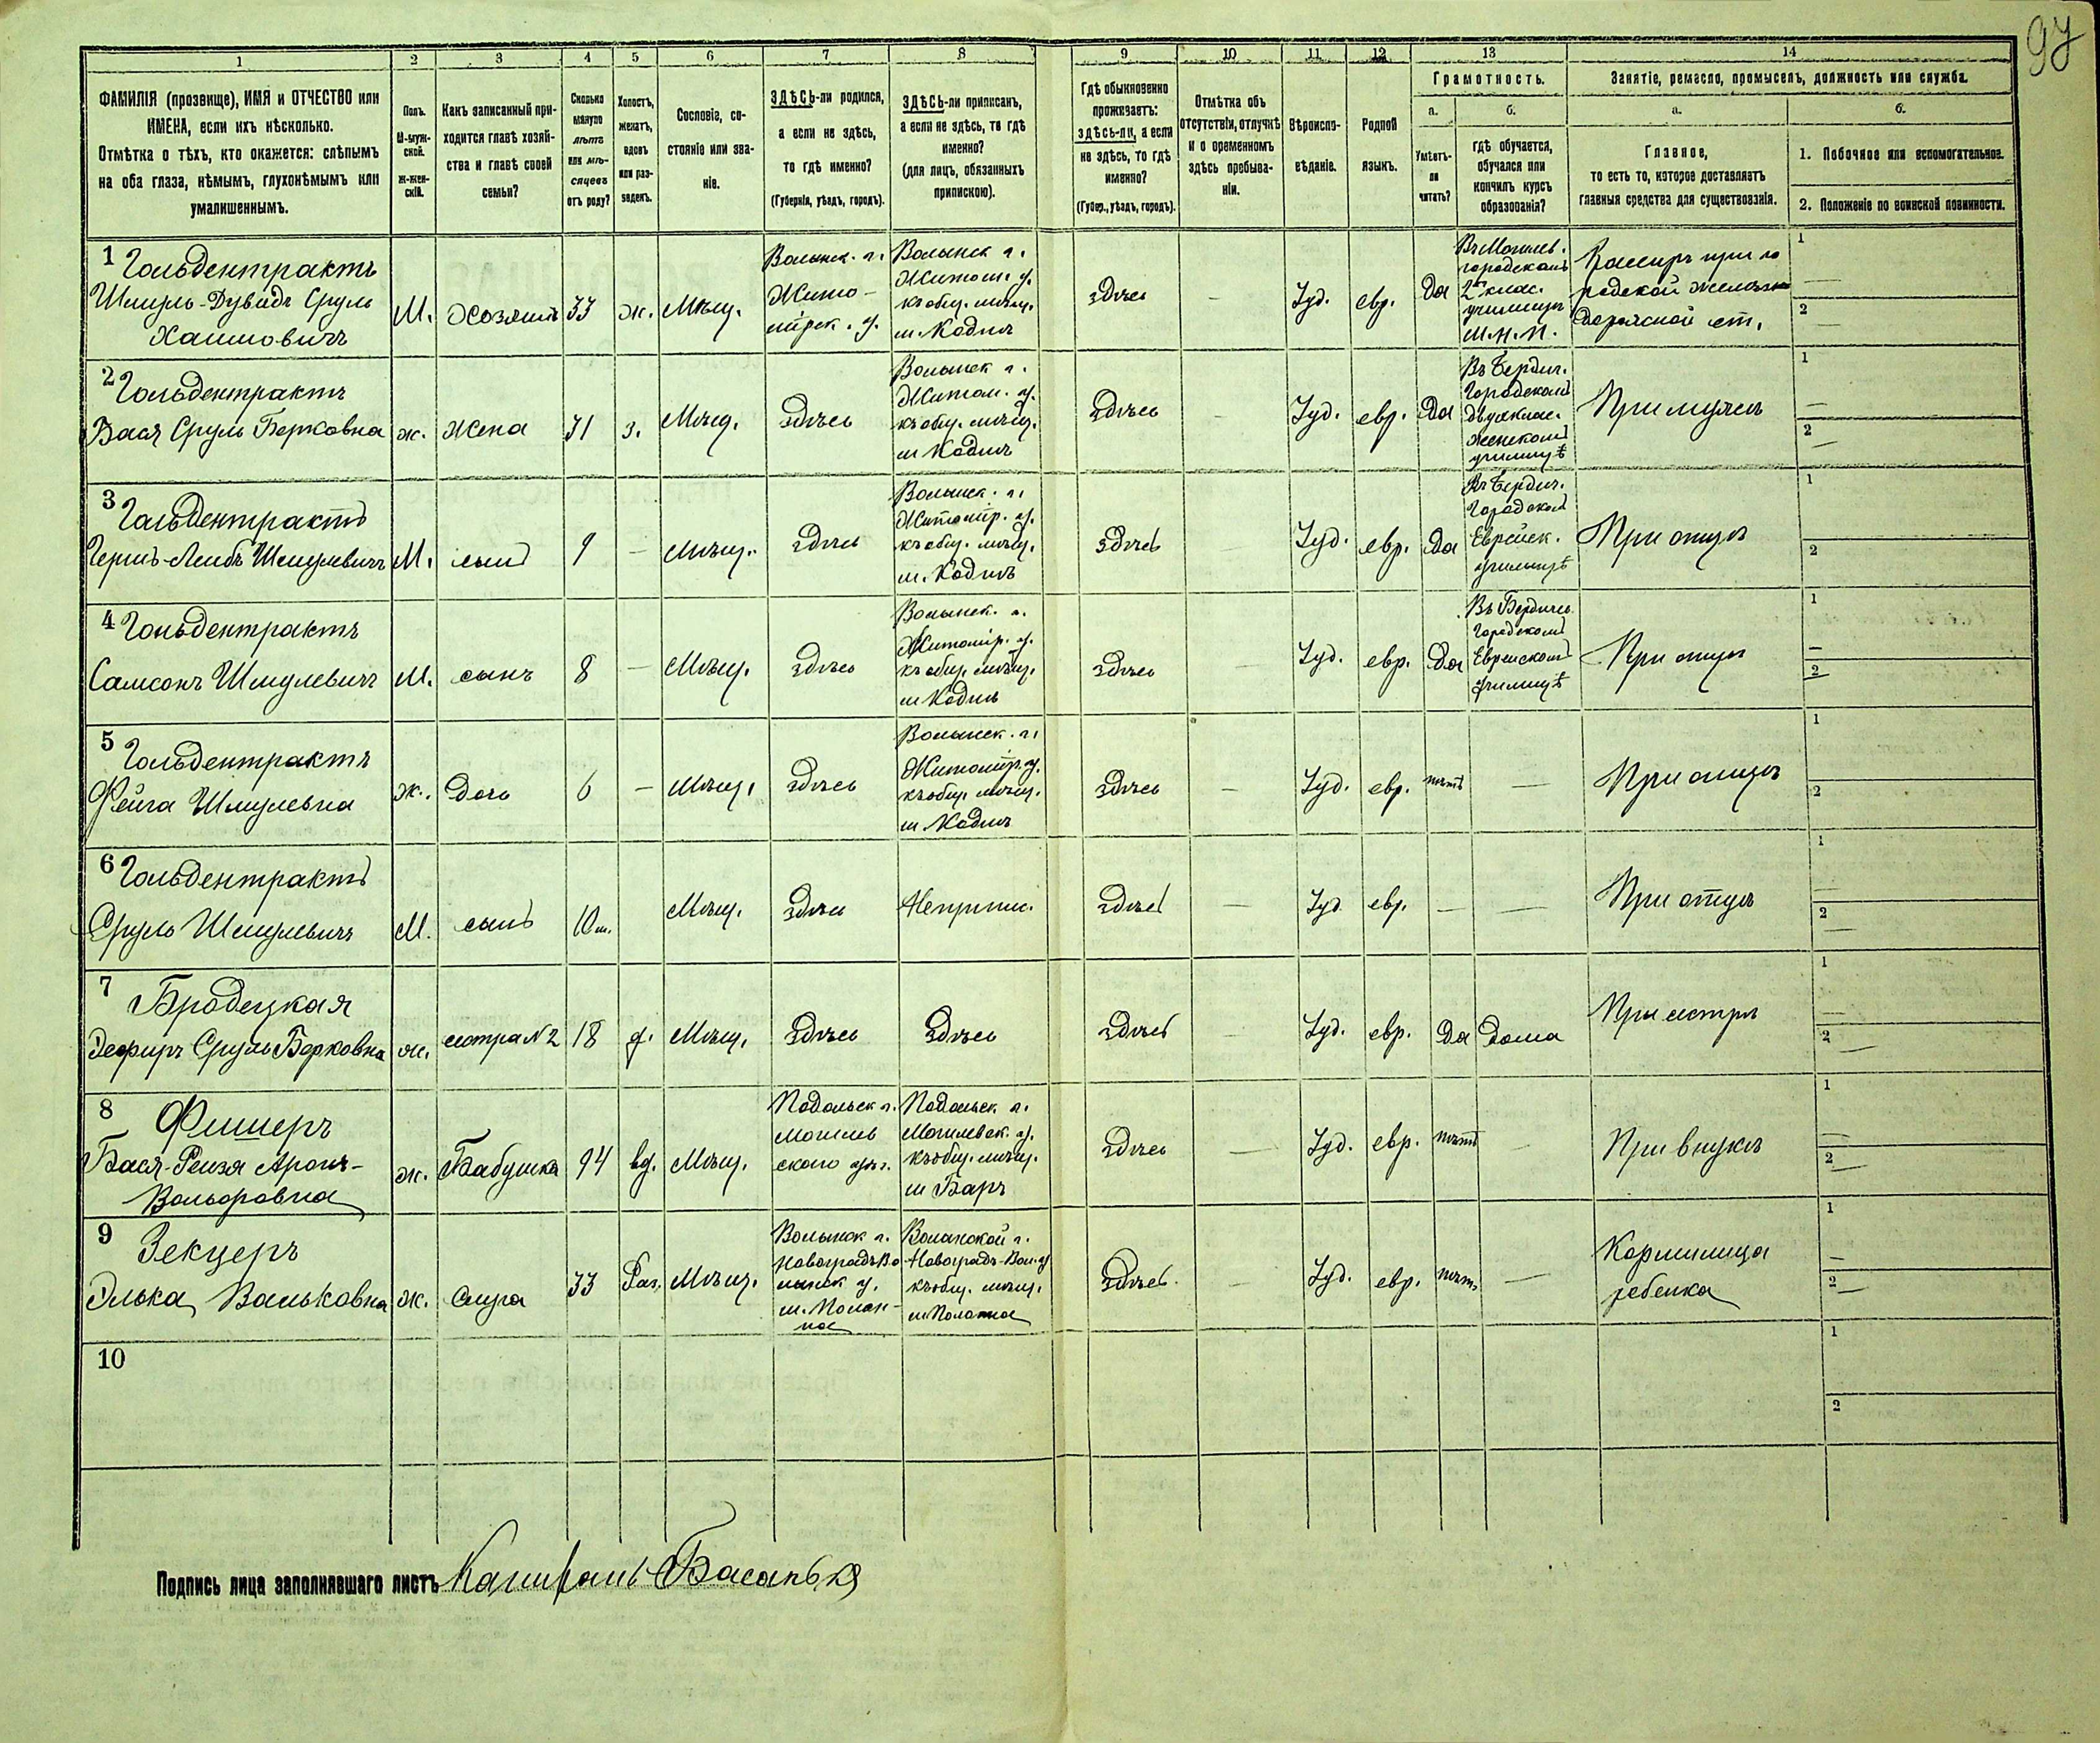 97
1 2 3 4 5 6 7 8 9 10 11 12 13 14
ФАМИЛІЯ (прозвище), ИМЯ и ОТЧЕСТВО или
ИМЕНА, если ихъ нѣсколько.
Отмѣтка о тѣхъ, кто окажется: слѣпымъ
на оба глаза, нѣмымъ, глухонѣмымъ или
умалишеннымъ.
Полъ.
М-муж-
ской.
ж-жен-
скій.
Какъ записанный при-
ходится главѣ хозяй-
ства и главѣ своей
семьи?
Сколько
минуло
лѣтъ
или мѣ-
сяцевъ
отъ роду?
Холостъ,
женатъ,
вдовъ
или раз-
веденъ.
Сословіе, со-
стояніе или зва-
ніе.
ЗДѢСЬ-ли родился,
а если не здѣсь,
то гдѣ именно?
(Губернія, уѣздъ, городъ).
ЗДѢСЬ-ли приписанъ,
а если не здѣсь, то гдѣ
именно?
(для лицъ, обязанныхъ
припискою).
Гдѣ обыкновенно
проживаетъ:
здѣсь-ли, а если
не здѣсь, то гдѣ
именно?
(Губер., уѣздъ, городъ).
Отмѣтка объ
отсутствіи, отлучкѣ
и о временномъ
здѣсь пребыва-
ніи.
Вѣроиспо-
вѣданіе.
Родной
языкъ.
Грамотность.
а.
Умѣетъ-
ли
читать?
б.
гдѣ обучается,
обучался или
кончилъ курсъ
образованія?
Занятіе, ремесло, промыселъ, должность или служба.
а.
Главное,
то есть то, которое доставляетъ
главныя средства для существованія.
б.
1. Побочное или вспомогательное.
2. Положеніе по воинской повинности.
1 Гольдентрактъ
Шмуль-Дувидъ Сруль
Хаимовичъ
М.
Хозяинъ
33
ж.
Мѣщ.
Волынск. г.
Жито-
мірск. у.
Волынск г.
Житом. у.
къ общ. мѣщ.
м. Кодни
здѣсь
—
Іуд.
евр.
Да
Въ Могилев.
городскомъ
2 клас.
училищѣ
М.Н.П.
Кассиръ при го
родской желѣзно
дорожной ст.
1
—
2
—
2 Гольдентрактъ
Бася Сруль Берковна
ж.
Жена
31
з.
Мѣщ.
Здѣсь
Волынск г.
Житом. у.
къ общ. мѣщ.
м Кодни
Здѣсь
—
Іуд.
евр.
Да
Въ Бердич.
Городскомъ
двухклас.
женскомъ
училищѣ
При мужѣ
1
—
2
—
3 Гольдентрактъ
Герш-Лейбъ Шмулевичъ
М.
сынъ
9
—
Мѣщ.
здѣсь
Волынск. г.
Житомір. у.
къ общ. мѣщ.
м. Кодни
Здѣсь
—
Іуд.
евр.
Да
Въ Бердич.
Городском
Еврейск.
училищѣ
При отцѣ
1
2
4 Гольдентрактъ
Самсонъ Шмулевичъ
М.
сынъ
8
—
Мѣщ.
здѣсь
Волынск. г.
Житомір. у.
къ общ. мѣщ.
м Кодни
здѣсь
—
Іуд.
евр.
Да
Въ Бердичев.
Городскомъ
Еврейскомъ
училищѣ
При отцѣ
1
—
2
5 Гольдентрактъ
Фейга Шмулевна
ж.
Дочь
6
—
Мѣщ.
Здѣсь
Волынск. г.
Житомір. у.
къ общ. мѣщ.
м. Кодни
Здѣсь
—
Іуд.
евр.
нѣтъ
—
При отцѣ
1
2
6 Гольдентрактъ
Сруль Шмулевичъ
М.
сынъ
10 м.
Мѣщ.
Здѣсь
Неприпис.
Здѣсь
—
Іуд
евр.
—
—
При отцѣ
1
—
2
—
7 Бродецкая
Сруль Берковна
ж.
сестра №2
18
д.
Мѣщ.
Здѣсь
Здѣсь
Здѣсь
—
Іуд.
евр.
Да
Дома
При сестрѣ
1
—
2
—
8 Фишеръ
Бася-Рейзя Аронъ-
Вольфовна
ж.
Бабушка
94
вд.
Мѣщ.
Подольск г.
Могилев
скаго
Подольск г.
Могилевск. у.
къ общ. мѣщ.
м Баръ
Здѣсь
—
Іуд.
евр.
нѣтъ
—
При внукѣ
1
—
2
—
9 Зекцеръ
Элька Вольковна
ж.
Слуга
33
Раз.
Мѣщ.
Волынск г.
Новоградъ Во
лынск у.
м. Полон-
ное
Волынской г.
Новоградъ-Вол. у
къ общ. мѣщ.
м Полонна
Здѣсь
—
Іуд.
евр.
нѣтъ
—
Кормилица
ребенка
1
—
2
—
10
1
2
Подпись лица заполнявшаго листъ